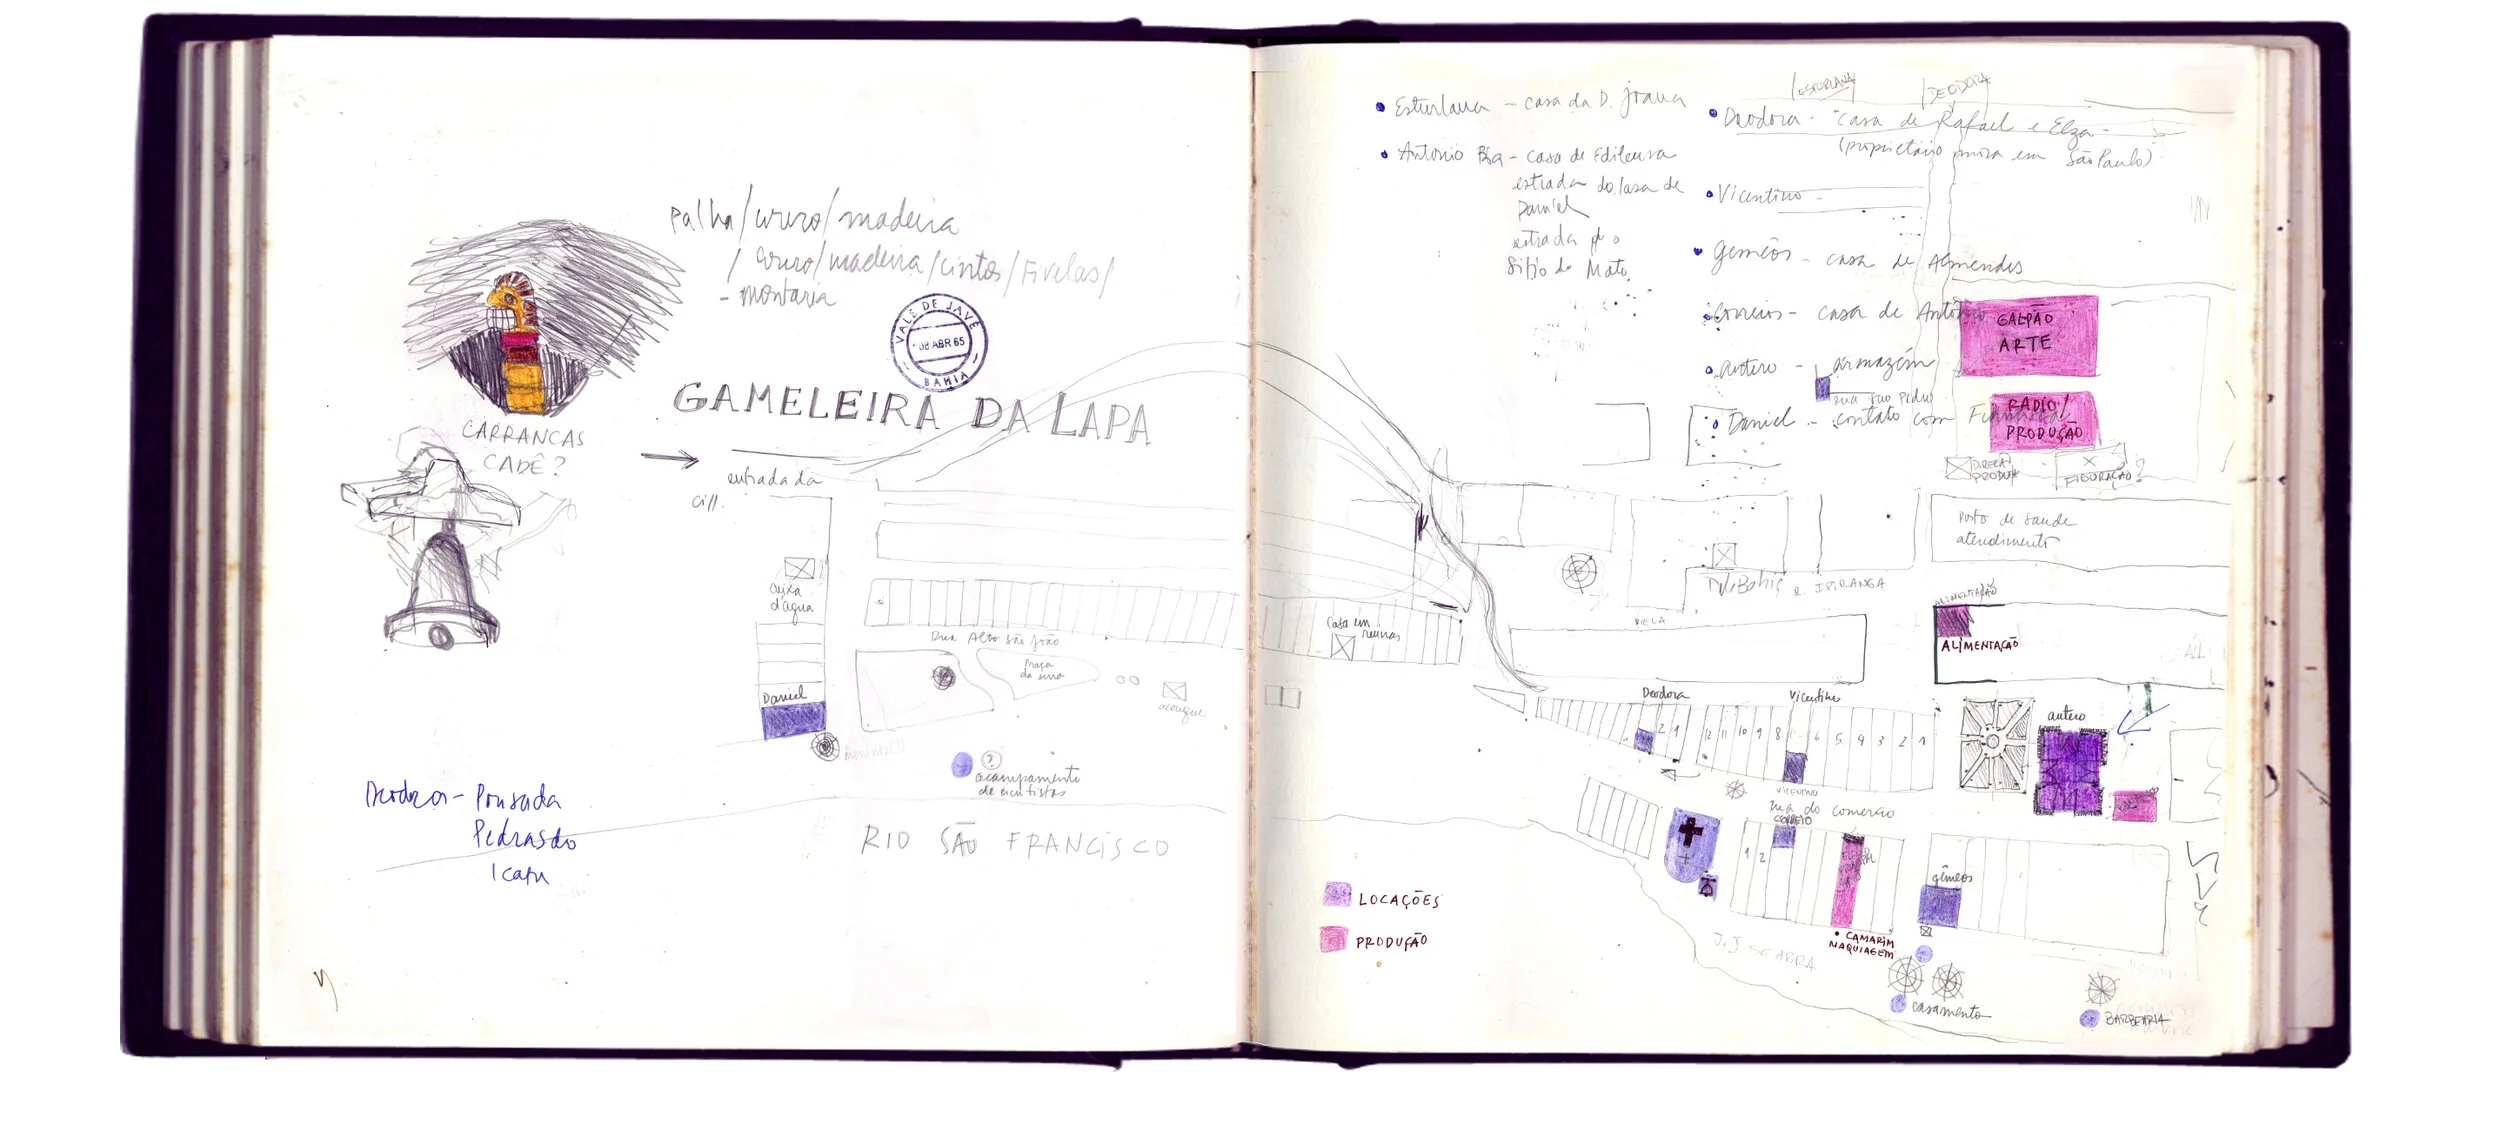 palha/couro/madeira
/ couro/madeira/cintos/Fivelas/
- montaria
VALE DE JAVÉ
08 ABR 65
BAHIA
GAMELEIRA DA LAPA
CARRANCAS
CADÊ?
entrada da
caixa
d'agua
Rua Alto São João
Praça
da
Daniel
açougue
?
acampamento
de cientistas
RIO SÃO FRANCISCO
Deodora - Pousada
Pedras do
Icapu
ESTURLANA
DEODORA
Esturlana - casa da D. Joana
Antonio Biá - casa de Edileusa
estrada da casa de
Daniel
estrada p/ o
Sitio do Mato
Deodora - casa de Rafael e Elza -
(proprietário mora em São Paulo)
Vicentino -
Gemêos - casa de Almendes
Correios - casa de Antônio
Antero - armazém
rua São Pedro
Daniel - contato com
GALPÃO
ARTE
RADIO/
PRODUÇÃO
DIREÇÃO
PRODUÇ
FIGURAÇÃO?
Posto de saude
atendimento
IPIRANGA
VIELA
ALIMENTAÇÃO
ALIMENTAÇÃO
Casa em
ruinas
Deodora
2 1
Vicentino
12 11 10 9 8 6 5 4 3 2 1
antero
VICENTINO
rua do comercio
CORREIO
1 2
gêmeos
LOCAÇÕES
PRODUÇÃO
J.J. SEABRA
• CAMARIM
MAQUIAGEM
casamento
BARBEARIA